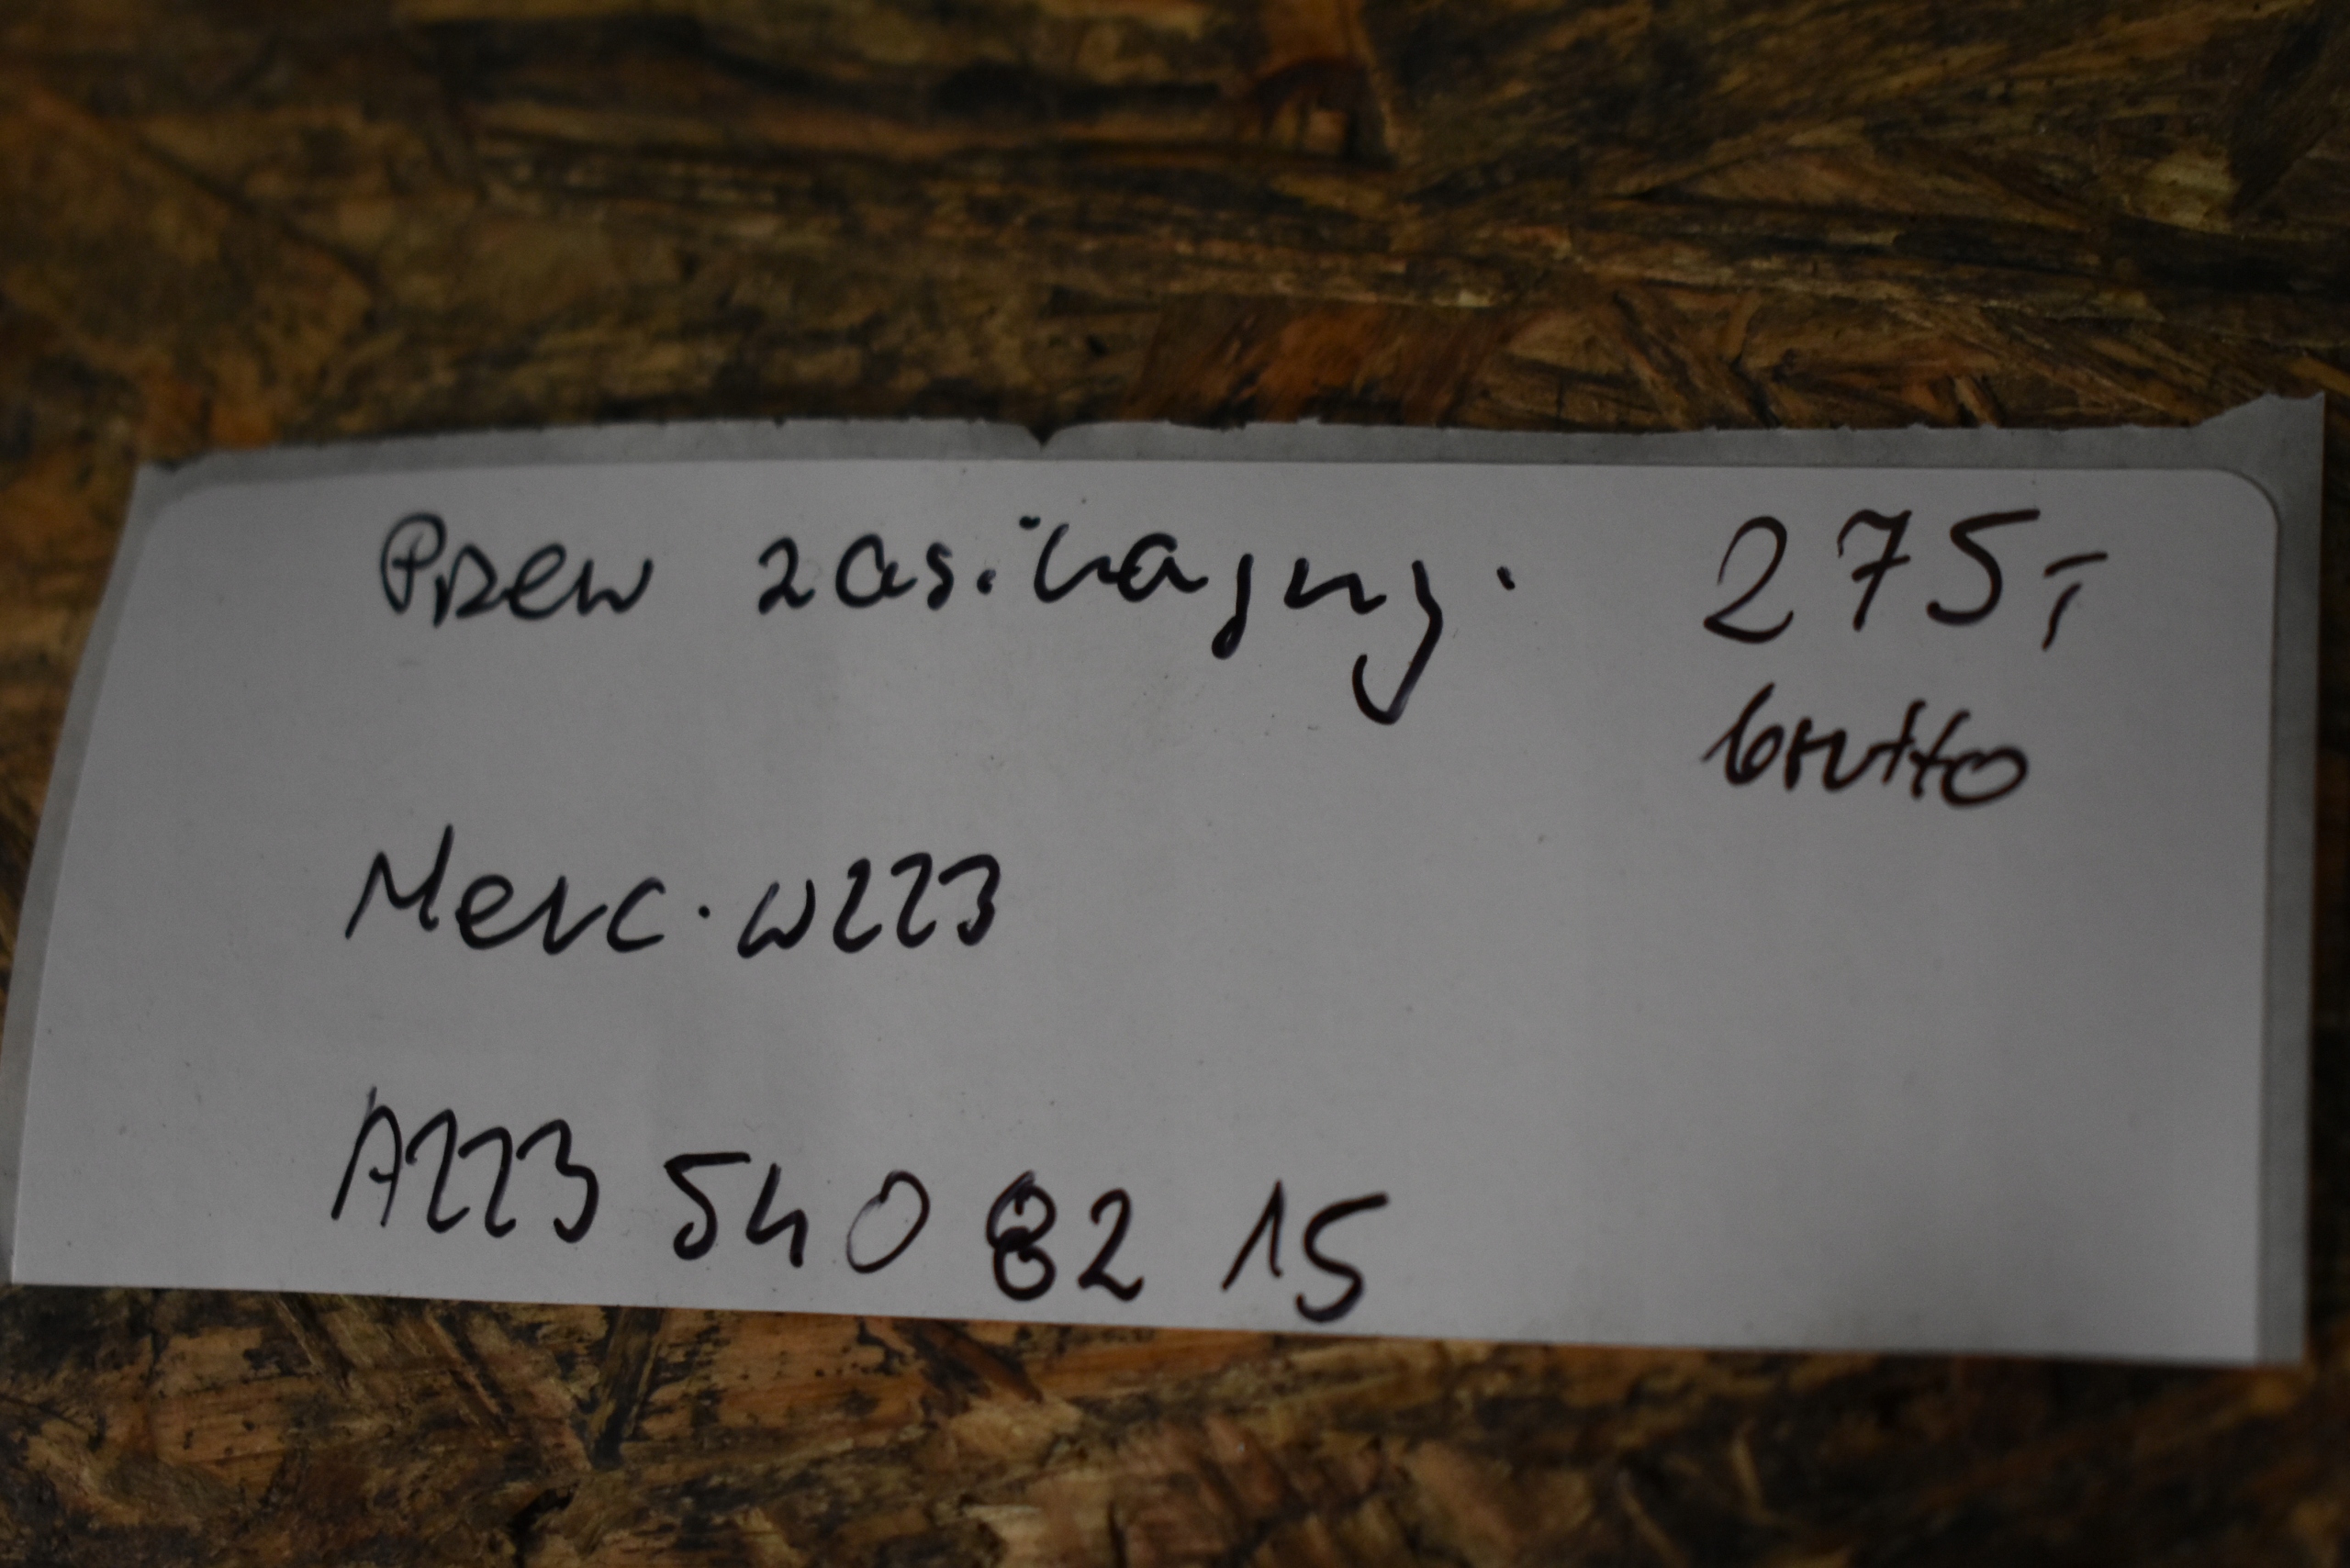 Przew zasilający. 275,-
brutto
Merc. W223
A223 540 82 15